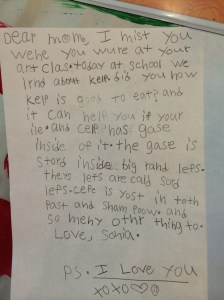 Dear mome, I mist you
wehe you wure at your
art clas. today at school we
lrnd about kelp. did you how
kelp is good to eat? and
it can help you if your
ile. and celp has gase
inside of it. the gase is
stord inside big rand lefs.
thers lefs are calld sord
lefs. celp is yost in toth
Past and sham poow. and
so meny othr thing to.
Love, Sonia.
P.S. I Love you
xoxo♡☺